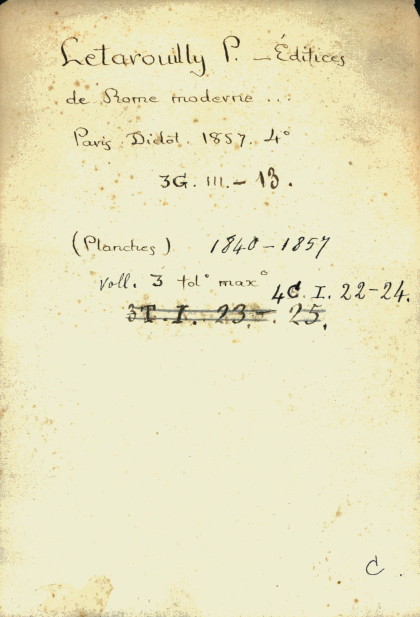 Letarouilly P. — Édifices
de Rome moderne ...
Paris Didot. 1857. 4°
3G. III. - 13.
(Planches) 1840-1857
voll. 3 fol° max°
4C. I. 22-24.
3T. I. 23. - 25.
C